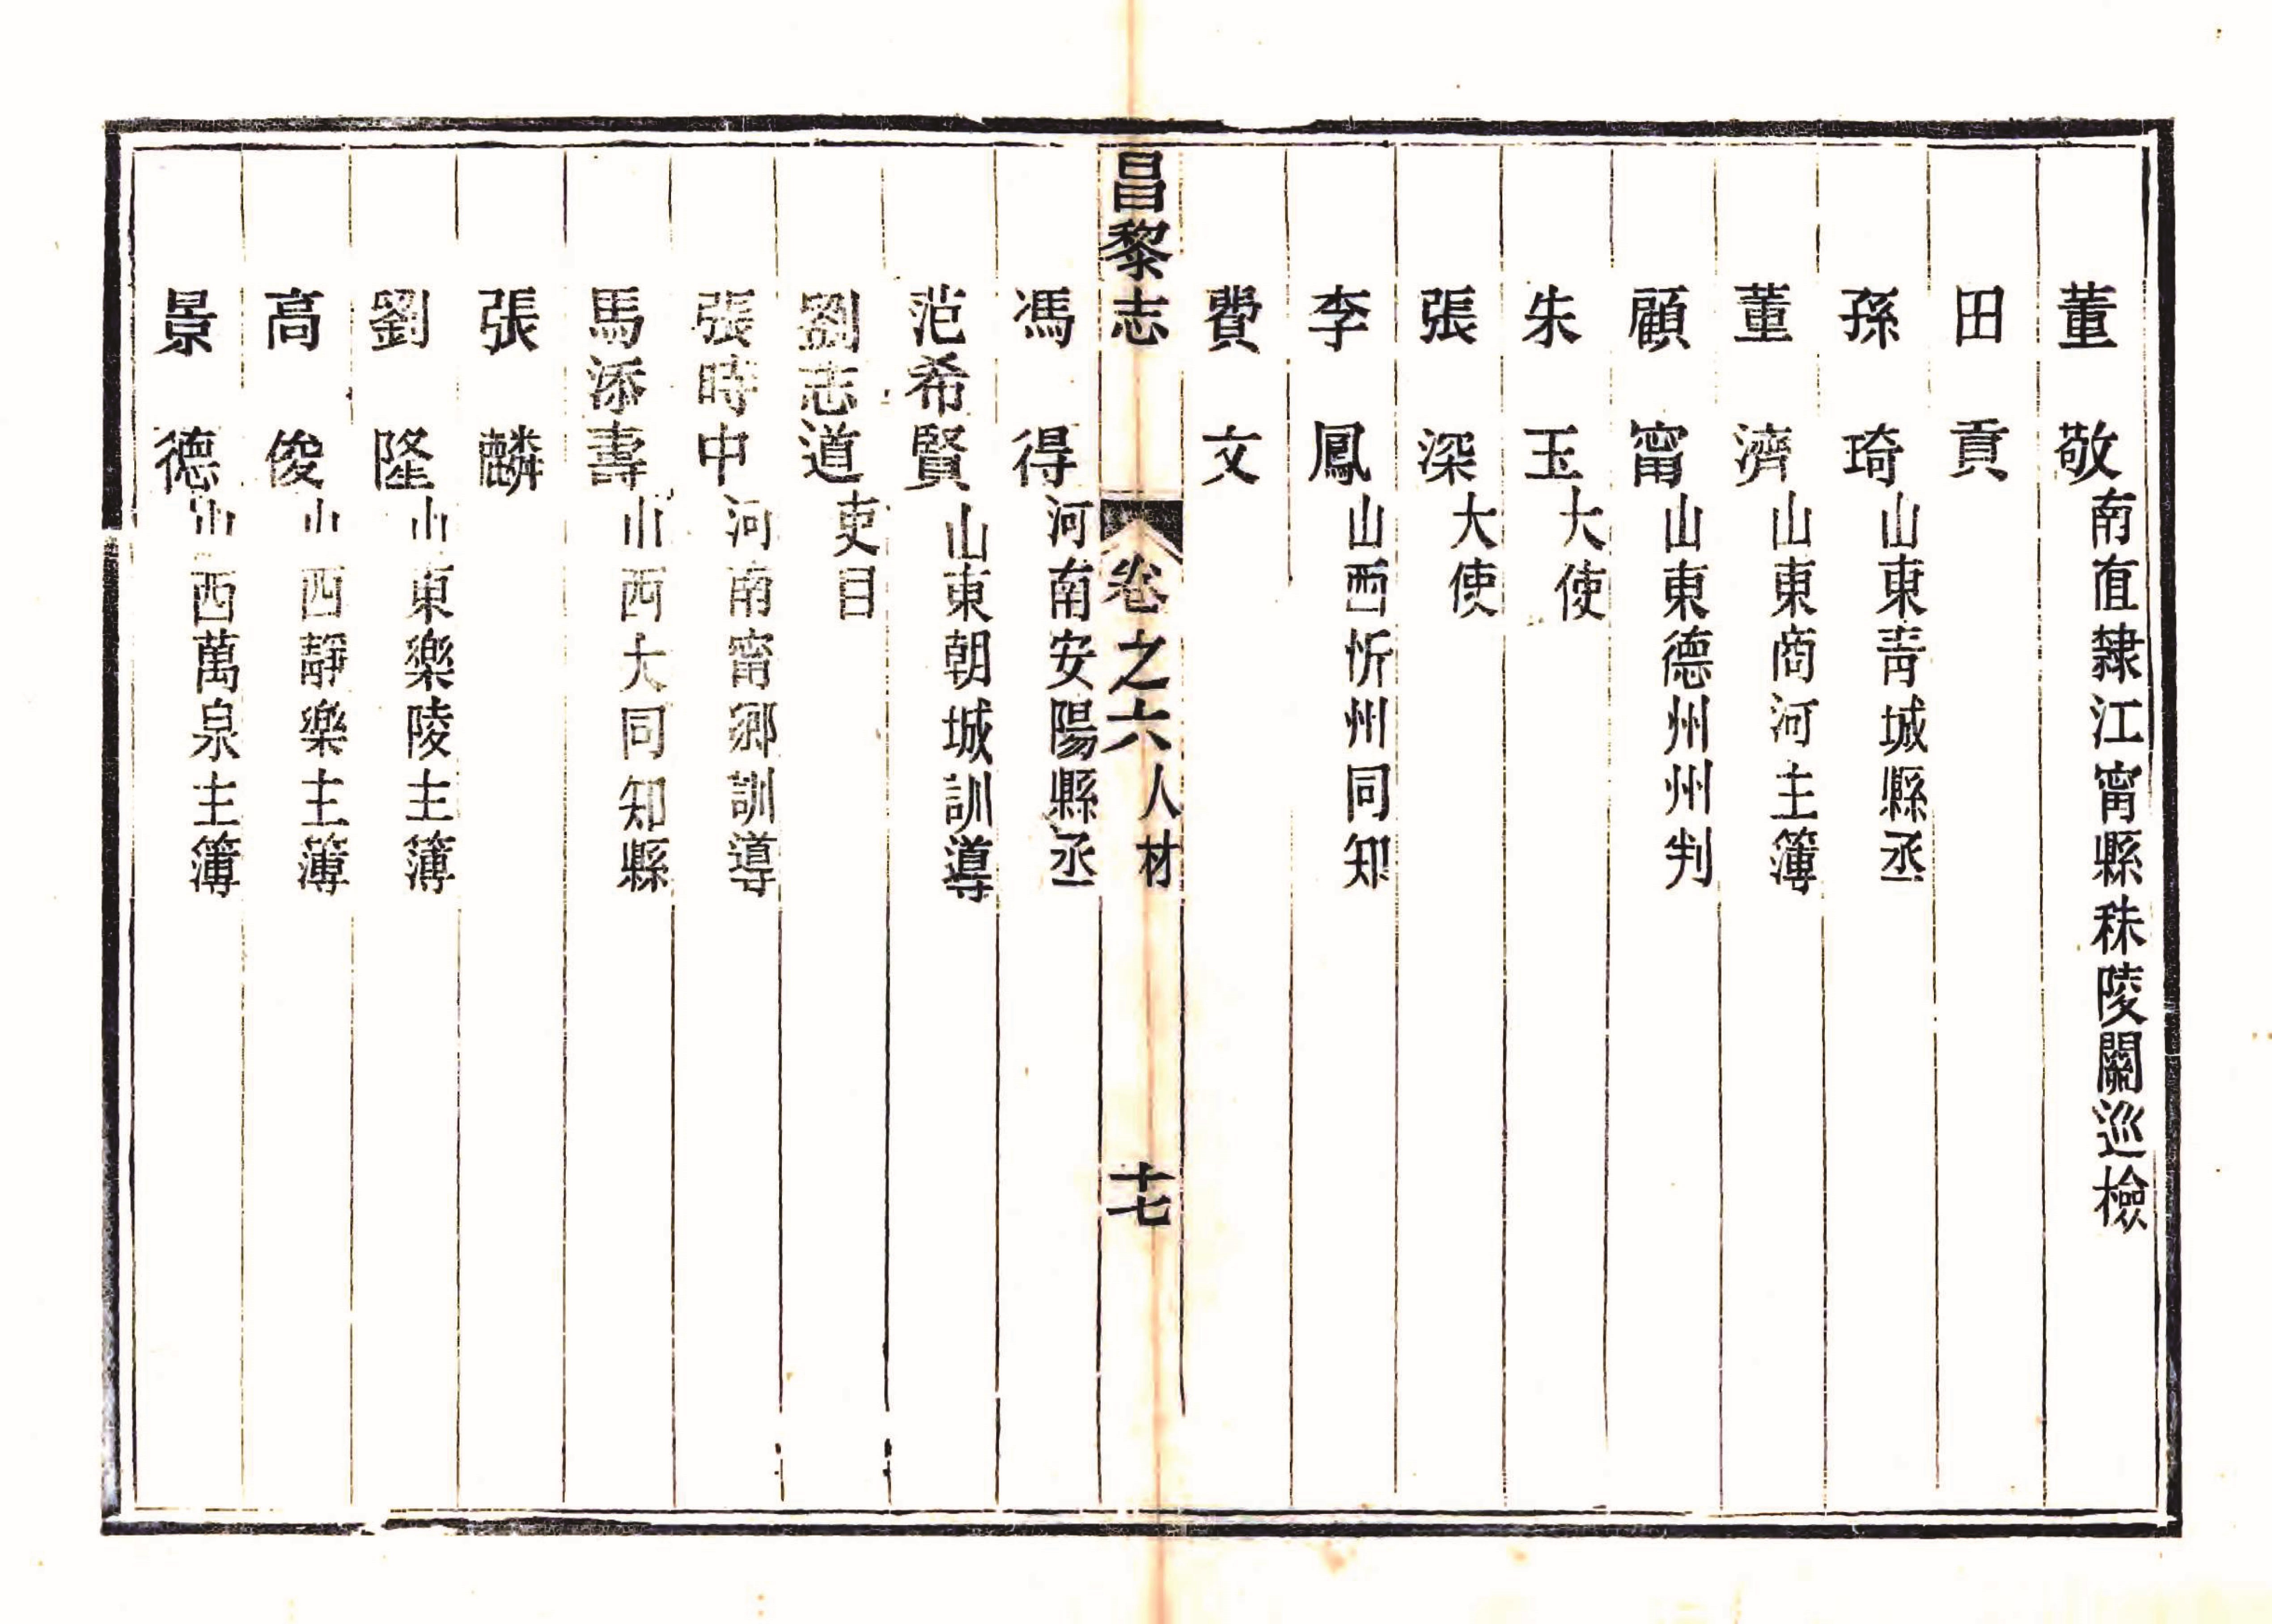 董敬南直隸江甯縣秣陵關巡檢
田貢
孫琦山東青城縣丞
董濟山東商河主簿
顧甯山東德州州判
朱玉大使
張深大使
李鳳山西忻州同知
費文
昌黎志 卷之六 人材 十七
馮得河南安陽縣丞
范希賢山東朝城訓導
劉志道吏目
張時中河南甯鄉訓導
馬添壽山西大同知縣
張麟
劉隆山東樂陵主簿
高俊山西靜樂主簿
景德山西萬泉主簿